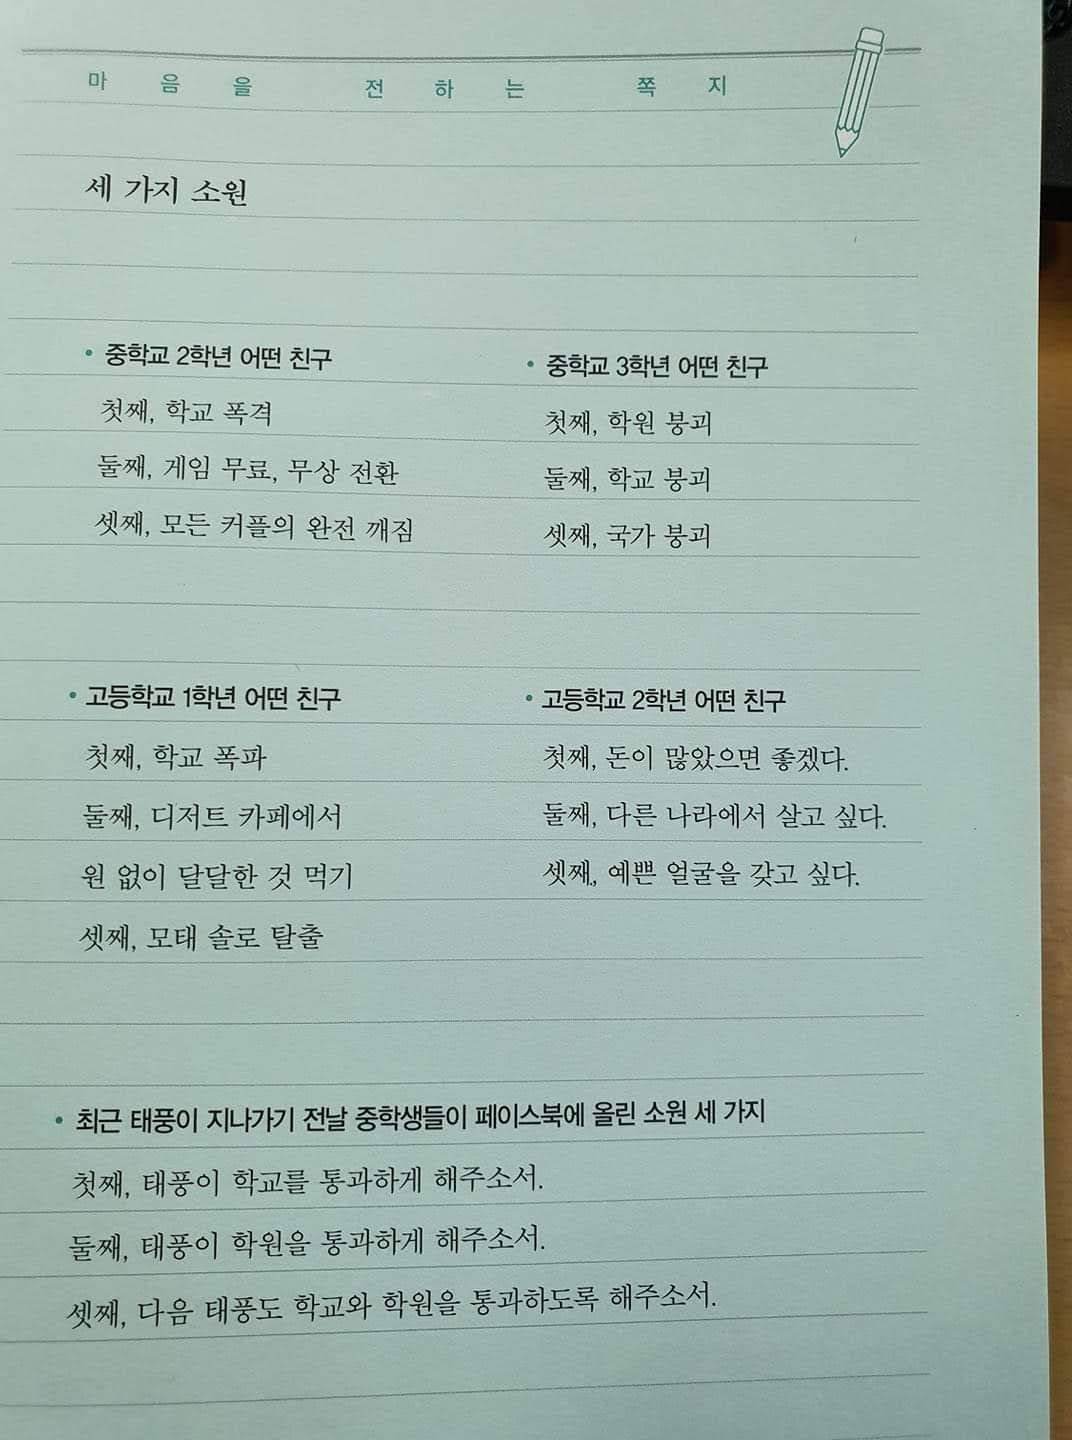 마음을 전하는 쪽지
세 가지 소원
• 중학교 2학년 어떤 친구
첫째, 학교 폭격
둘째, 게임 무료, 무상 전환
셋째, 모든 커플의 완전 깨짐
• 중학교 3학년 어떤 친구
첫째, 학원 붕괴
둘째, 학교 붕괴
셋째, 국가 붕괴
• 고등학교 1학년 어떤 친구
첫째, 학교 폭파
둘째, 디저트 카페에서
원 없이 달달한 것 먹기
셋째, 모태 솔로 탈출
• 고등학교 2학년 어떤 친구
첫째, 돈이 많았으면 좋겠다.
둘째, 다른 나라에서 살고 싶다.
셋째, 예쁜 얼굴을 갖고 싶다.
• 최근 태풍이 지나가기 전날 중학생들이 페이스북에 올린 소원 세 가지
첫째, 태풍이 학교를 통과하게 해주소서.
둘째, 태풍이 학원을 통과하게 해주소서.
셋째, 다음 태풍도 학교와 학원을 통과하도록 해주소서.